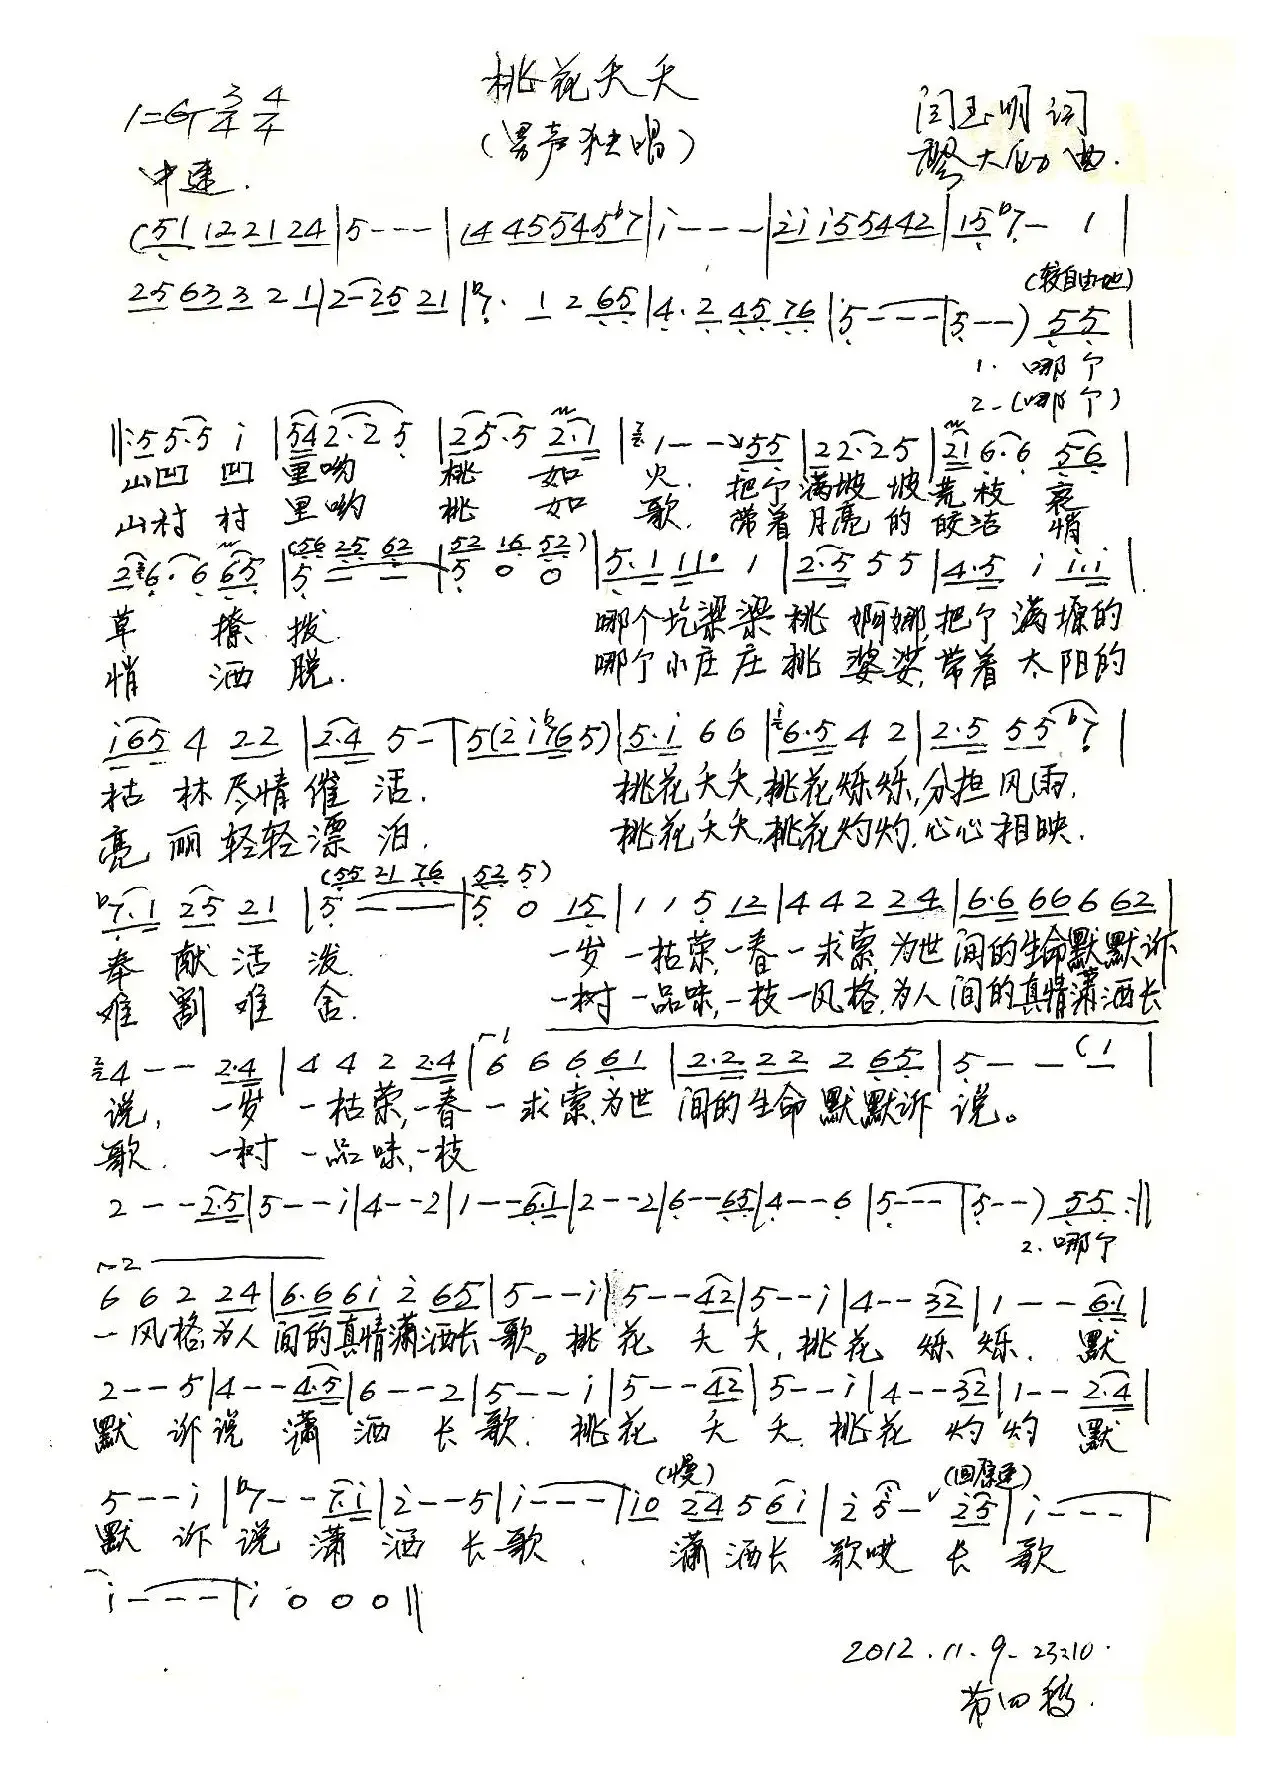 桃花夭夭
1=G 3/4 4/4
(男声独唱)
闫玉明 词
中速.
大 曲.
(51 12 21 24|5---|14 45 54 5b7|i---|2i i5 54 42|15 b7- 1|
25 63 3 2 1|2-25 21|b7. 1 2 65|4.2 45 76|5---|5--) 55|
(较自由地)
1. 哪个
2.(哪个)
||:5 5.5 i|54 2.2 5|25.5 2.1|1--55|22.25|21 6.6 56|
山凹凹里哟 桃如火. 把个满坡坡荒枝衰
山村村里哟 桃如歌. 带着月亮的皎洁悄
(56 25 62|52 16 52)
26.6 65|5--|5 0 0|5.1 11. 1|2.5 5 5|4.5 i i.i|
草撩拨. 哪个圪梁梁桃婀娜,把个满塬的
悄洒脱. 哪个小庄庄桃婆娑,带着太阳的
i65 4 22|2.4 5-|5(2i b765)|5.i 66|6.5 4 2|2.5 55 b7|
枯林尽情催活. 桃花夭夭,桃花烁烁,分担风雨.
亮丽轻轻漂泊. 桃花夭夭,桃花灼灼,心心相映.
(55 21 76|52 5)
b7.1 25 21|5---|5 0 15|1 1 5 12|4 4 2 24|6.6 66 6 62|
奉献活泼. 一岁一枯荣,一春一求索,为世间的生命默默诉
难割难舍. 一树一品味,一枝一风格,为人间的真情潇洒长
4--2.4|4 4 2 2.4|6 6 6 61|2.2 22 2 65|5--(1|
说, 一岁一枯荣,一春一求索,为世间的生命默默诉说。
歌. 一树一品味,一枝
2--2.5|5--i|4--2|1--6.1|2--2|6--65|4--6|5---|5--) 55:||
2. 哪个
6 6 2 24|6.6 6i 2 65|5--i|5--42|5--i|4--32|1--6.1|
一风格,为人间的真情潇洒长歌。桃花夭夭,桃花烁烁. 默
2--5|4--4.5|6--2|5--i|5--42|5--i|4--32|1--2.4|
默诉说潇洒长歌. 桃花夭夭.桃花灼灼默
(慢) (回原速)
5--i|b7--7.i|2--5|i---|i0 24 5 6i|2 5-25|i---|
默诉说潇洒长歌. 潇洒长歌哎长歌
i---|i 0 0 0||
2012.11.9-23:10.
第四稿.